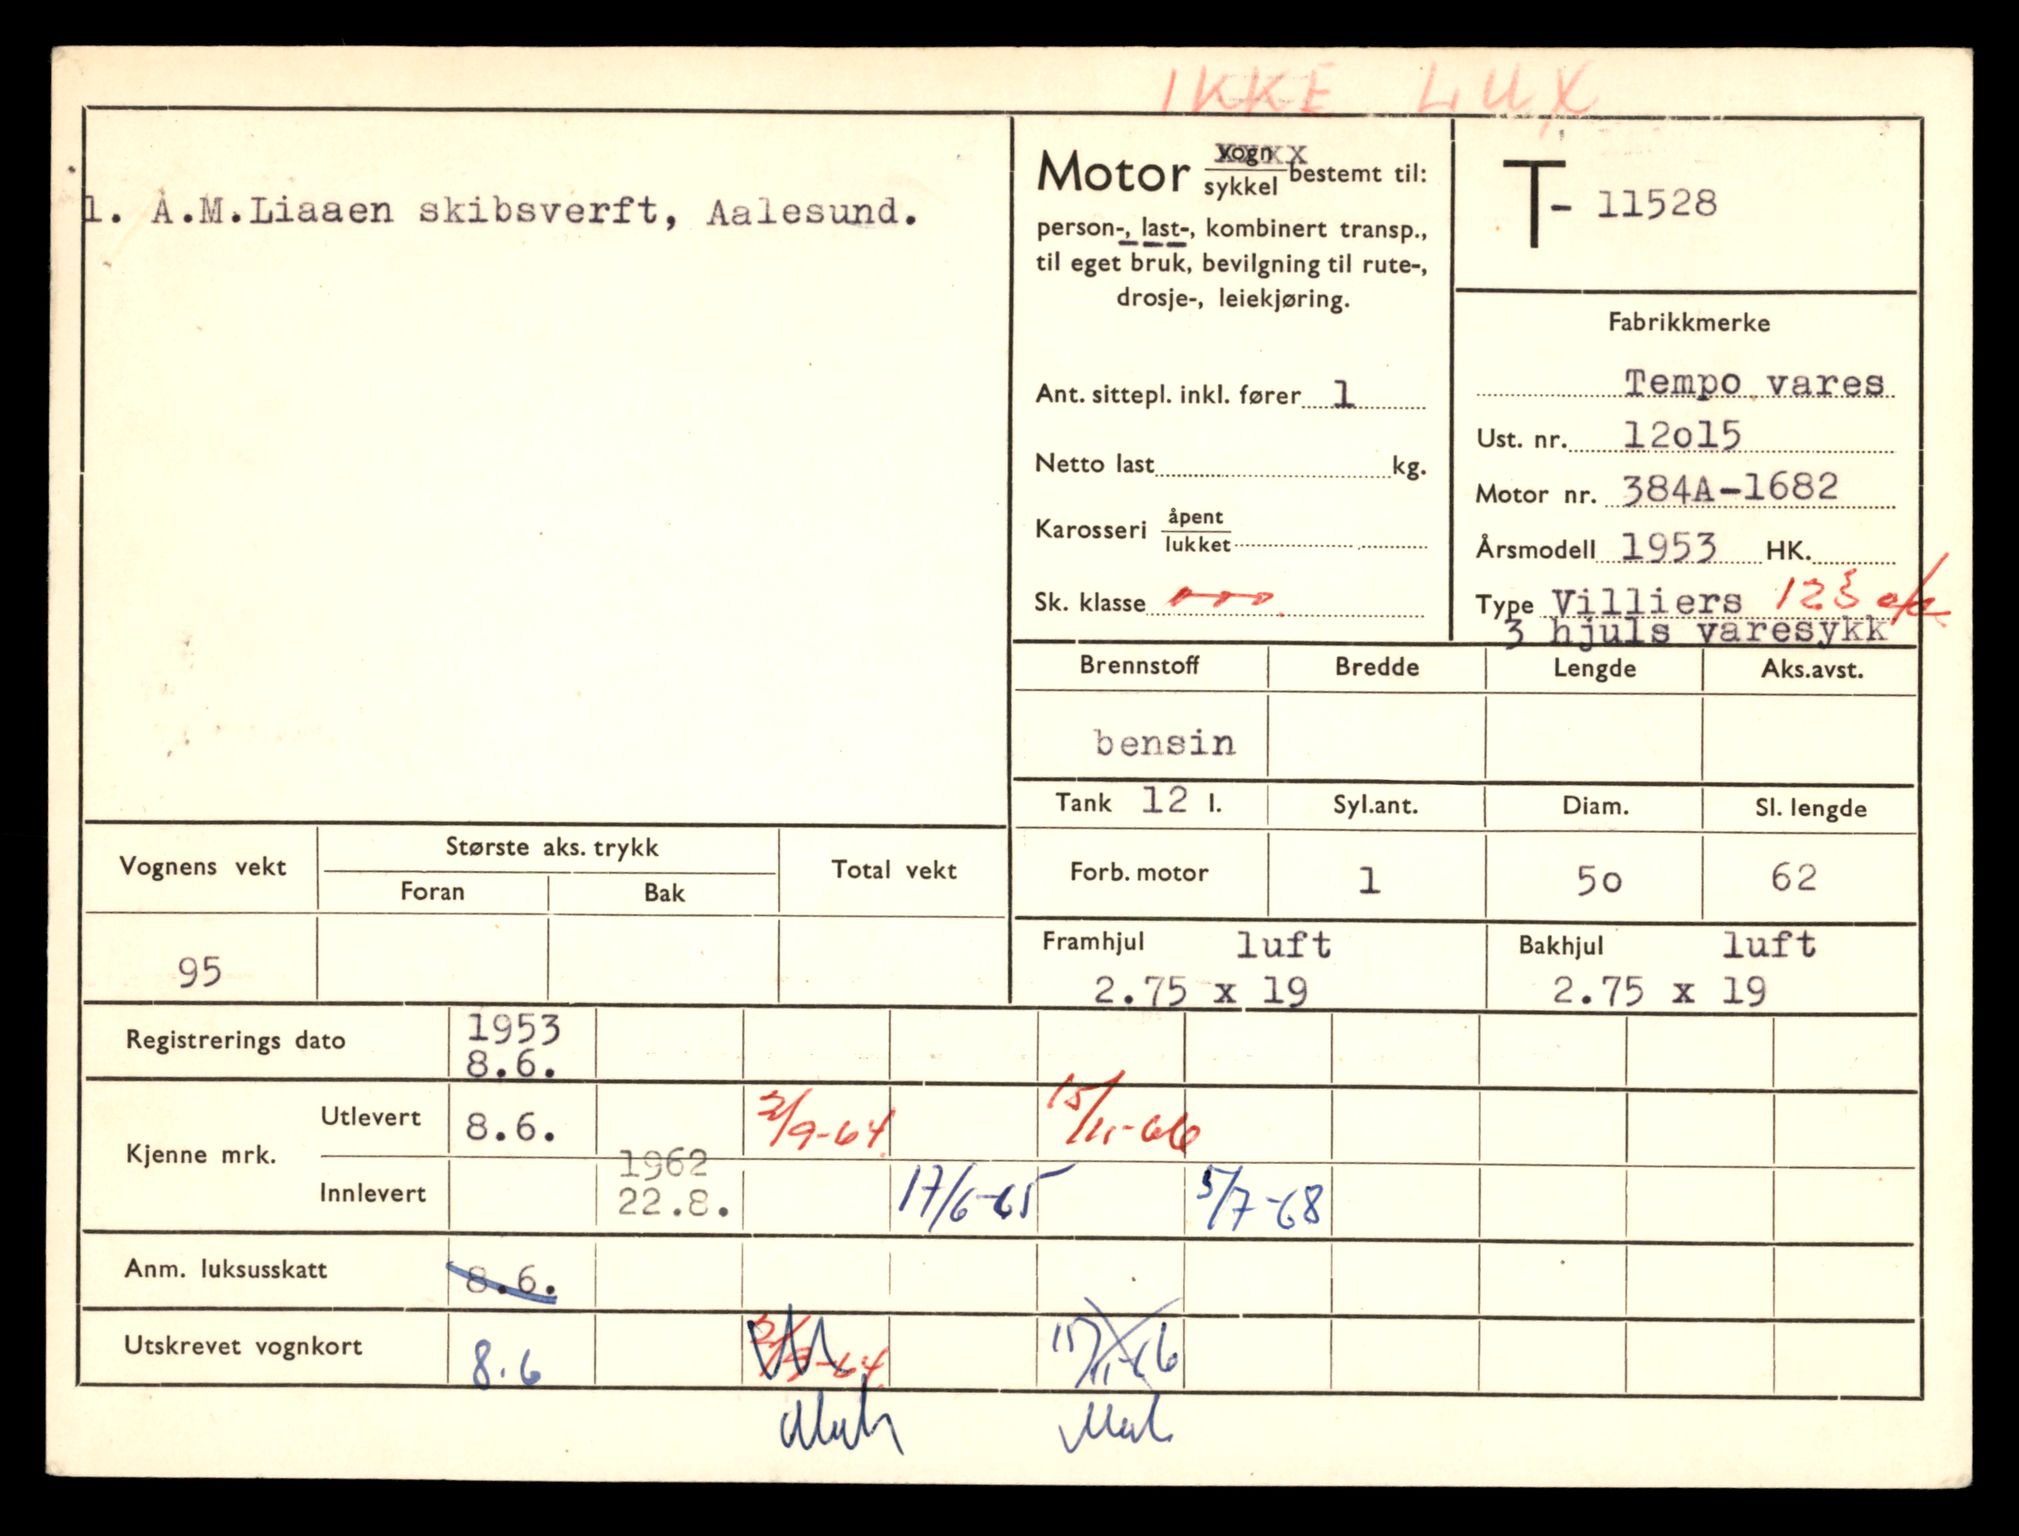 IKKE LUX
1. A.M.Liaaen skibsverft, Aalesund.
Motor vogn xxxx
sykkel bestemt til:
person-, last-, kombinert transp.,
til eget bruk, bevilgning til rute-,
drosje-, leiekjøring.
Ant. sittepl. inkl. fører 1
Netto last kg.
Karosseri åpent
lukket
Sk. klasse
T - 11528
Fabrikkmerke
Tempo vares
Ust. nr. 12o15
Motor nr. 384A-1682
Årsmodell 1953 HK.
Type Villiers 123
3 hjuls varesykk
Brennstoff Bredde Lengde Aks.avst.
bensin
Tank 12 l. Syl.ant. Diam. Sl. lengde
Forb. motor 1 5o 62
Framhjul luft Bakhjul luft
2.75 x 19 2.75 x 19
Vognens vekt Største aks. trykk Total vekt
Foran Bak
95
Registrerings dato 1953
8.6.
Kjenne mrk. Utlevert 8.6. 2/9-64 15/11-66
Innlevert 1962
22.8. 17/6-65 5/7-68
Anm. luksusskatt 8.6.
Utskrevet vognkort 8.6 2/9-64 15/11-66